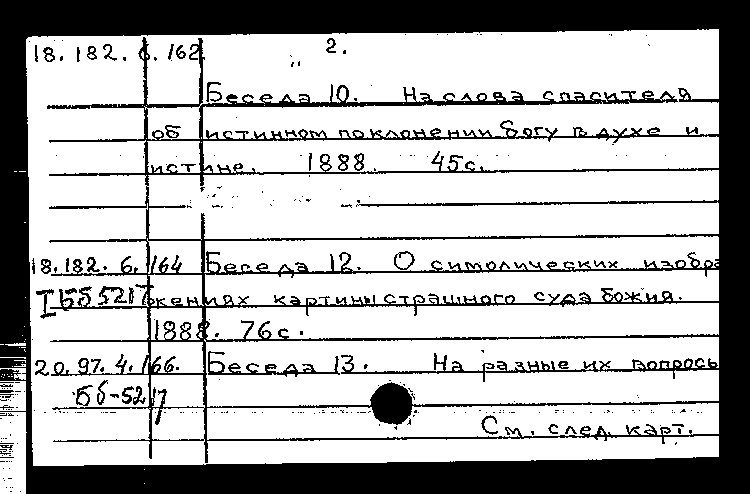 18.182.6.162 „ 2.
Беседа 10. На слова спасителя
об истинном поклонении богу в духе и
истине. 1888. 45с.
18.182.6.164 Беседа 12. О симолических изобра
I Бб 5217 жениях картины страшного суда божия.
1888. 76с.
20.97.4.166. Беседа 13. На разные их вопросы
Бб-5217
См. след. карт.